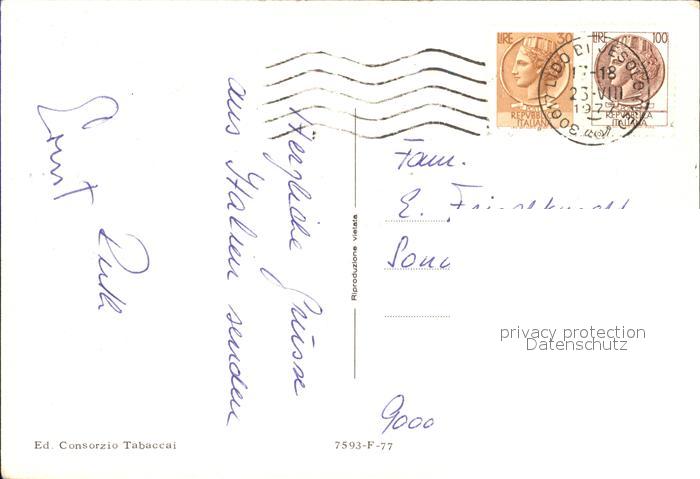 Herzliche Grüsse
aus Italien senden
Ernst
Ruth
Riproduzione vietata
LIRE 50
REPVBBLICA
ITALIANA
LIRE 100
REPVBBLICA
ITALIANA
30017 LIDO DI JESOLO
17-18
23-VIII
197
Fam.
E.
9000
privacy protection
Datenschutz
Ed. Consorzio Tabaccai
7593-F-77